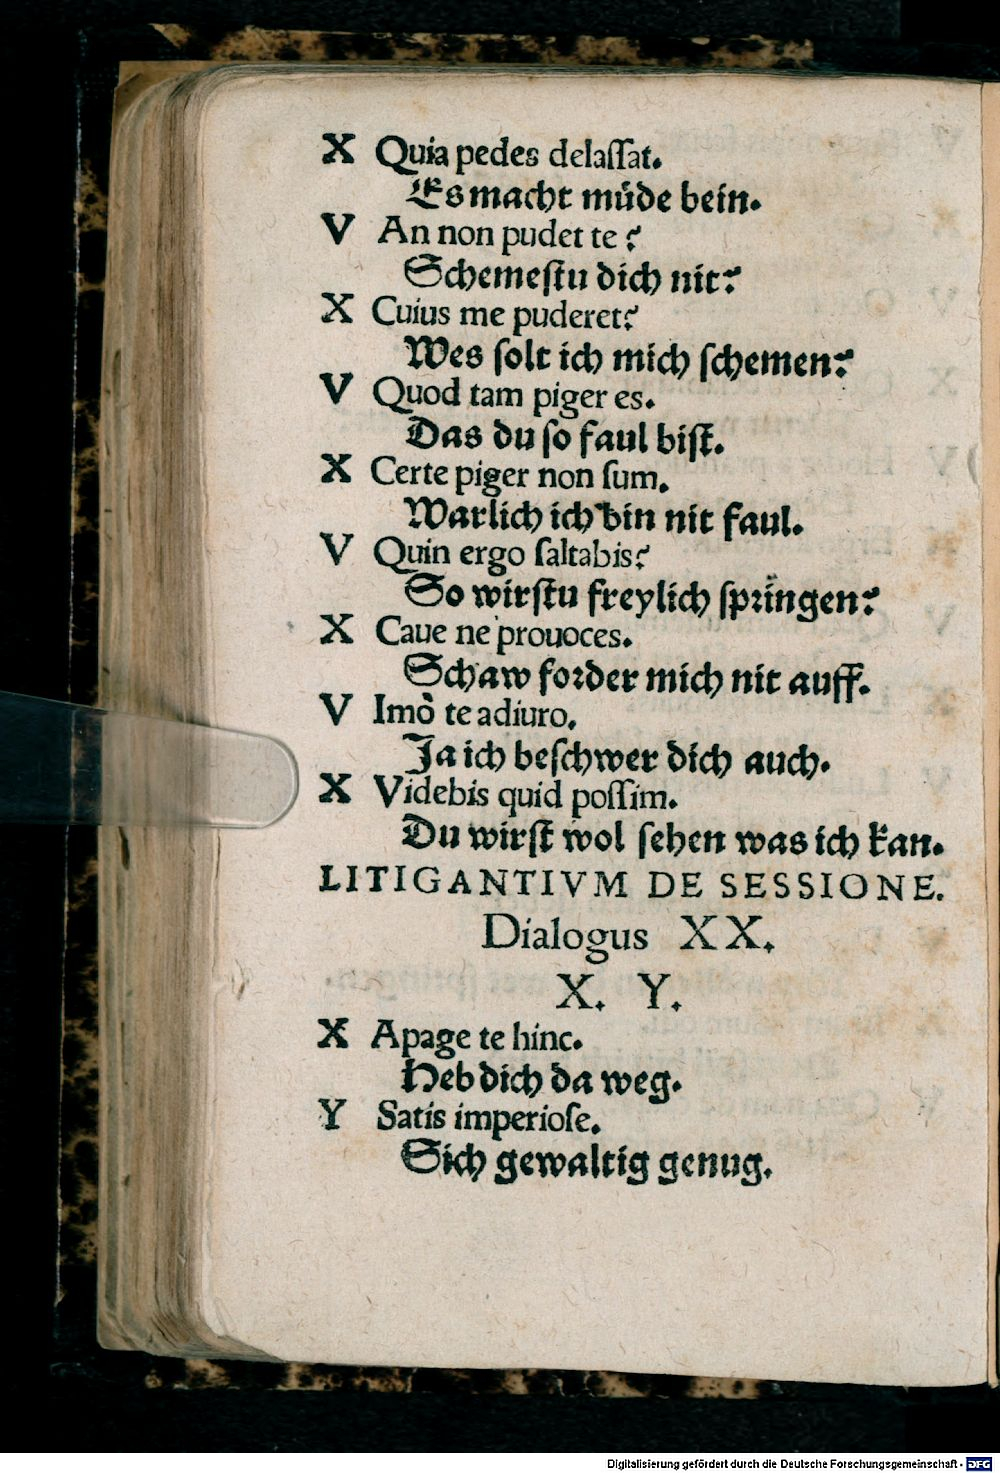 X Quia pedes delaſſat.
Es macht müde bein.
V An non pudet te?
Schemeſtu dich nit?
X Cuius me puderet?
Wes ſolt ich mich ſchemen?
V Quod tam piger es.
Das du ſo faul biſt.
X Certe piger non ſum.
Warlich ich bin nit faul.
V Quin ergo ſaltabis?
So wirſtu freylich ſpringen?
X Caue ne prouoces.
Schaw forder mich nit auff.
V Imò te adiuro.
Ja ich beſchwer dich auch.
X Videbis quid poſſim.
Du wirſt wol ſehen was ich kan.
LITIGANTIVM DE SESSIONE.
Dialogus XX.
X. Y.
X Apage te hinc.
Heb dich da weg.
Y Satis imperioſe.
Sich gewaltig genug.
Digitalisierung gefördert durch die Deutsche Forschungsgemeinschaft - DFG